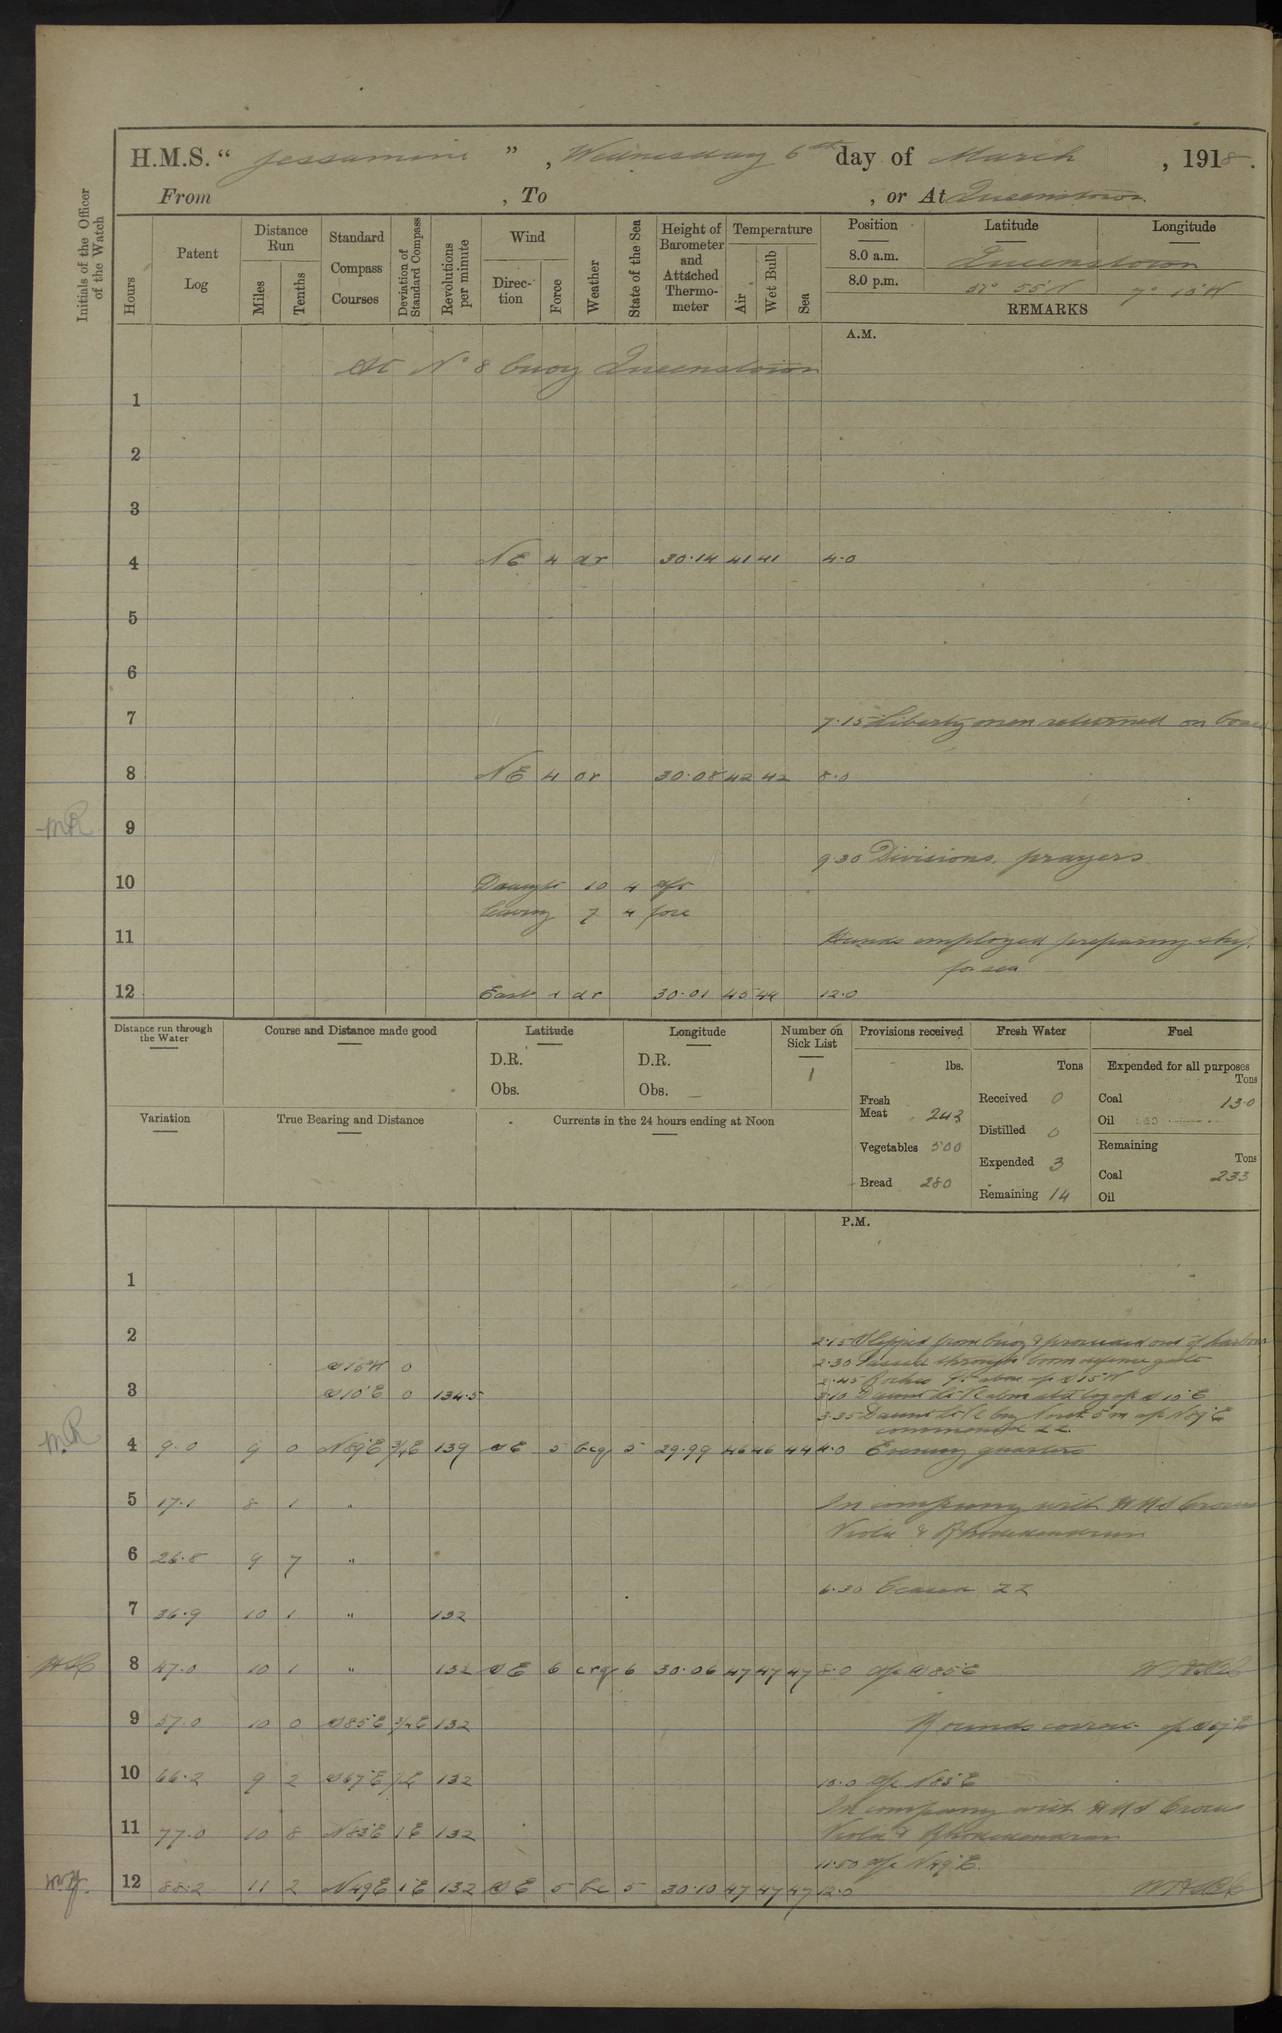 H.M.S. “ Jessamine ” , Wednesday 6th day of March , 1918.
From , To , or At Queenstown
Initials of the Officer of the Watch
Hours
Patent Log
Distance Run
Miles
Tenths
Standard Compass Courses
Deviation of Standard Compass
Revolutions per minute
Wind
Direction
Force
Weather
State of the Sea
Height of Barometer and Attached Thermometer
Temperature
Air
Wet Bulb
Sea
Position Latitude Longitude
8.0 a.m. Queenstown
8.0 p.m. 51° 55'N 7° 15'W
REMARKS
A.M.
At No 8 buoy Queenstown
1
2
3
4 NE 4 dr 30.14 41 41 4.0
5
6
7 7.15 Liberty men returned on board
8 NE 4 or 30.08 42 42 8.0
MR 9
9 30 Divisions. prayers
10 Draught 10 4 aft
leaving 7 4 fore
11 Hands employed preparing ship
for sea
12 East dr 30.01 45 44 12.0
Distance run through the Water
Course and Distance made good
Latitude
Longitude
Number on Sick List
Provisions received
Fresh Water
Fuel
D.R. D.R. 1 lbs. Tons Expended for all purposes Tons
Obs. Obs.
Fresh Meat 243 Received 0 Coal 13.0
Variation True Bearing and Distance Currents in the 24 hours ending at Noon
Distilled 0 Oil
Vegetables 500 Remaining Tons
Expended 3 Coal 233
Bread 280 Remaining 14 Oil
P.M.
1
2 2.15 Slipped from buoy & proceeded out of harbour
S15W 0 2.30 Passed through boom defence gate
2.45 Roches Pt abm a/c S15W
3 S10E 0 134.5 3.10 Daunt Lt V abm a/c S10E
3.35 Daunt Lt V North 5m a/c N89E
commenced ZZ
MR 4 9.0 9 0 N89E ¾E 139 SE 5 bcq 5 29.99 46 46 44 4.0 Evening quarters
5 17.1 8 1 " In company with HMS Crocus
Viola & Rhododendron
6 26.8 9 7 "
6.30 Ceased ZZ
7 36.9 10 1 " 132
8 47.0 10 1 " 132 SE 6 crq 6 30.06 47 47 47 8.0 a/c S85E
9 57.0 10 0 S85E ¾E 132 Rounds correct a/c S67E
10 66.2 9 2 S67E ½E 132 10.0 a/c N83E
In company with HMS Crocus
11 77.0 10 8 N83E 1E 132 Viola & Rhododendron
11.50 a/c N49E.
12 88.2 11 2 N49E 1E 132 SE 5 bc 5 30.10 47 47 47 12.0